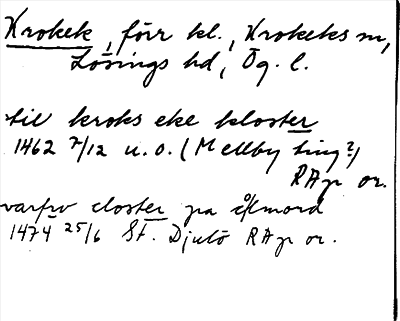 Krokek, förr kl., Krokeks sn,
Lösings hd, Ög. l.
til kroks eke kloster
1462 7/12 u. o. (Mellby ting?)
RAp or.
closter pa
1474 25/6 St. Djulö RAp or.